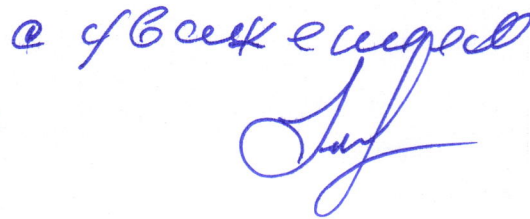 с уважением